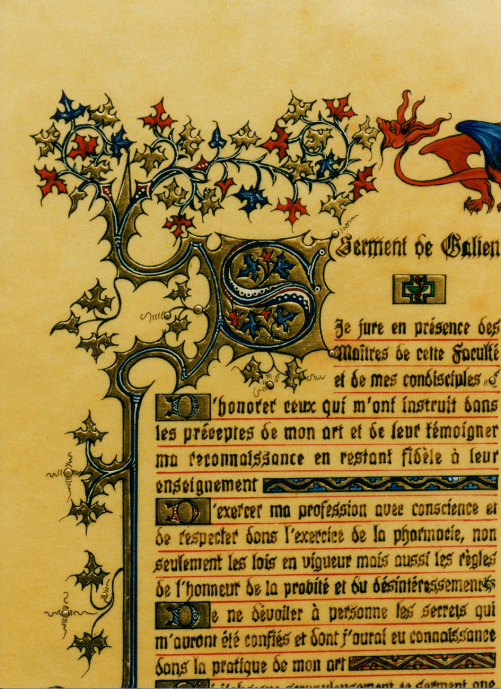 Serment de Galien
Je jure en présence des
Maîtres de cette Faculté
et de mes condisciples
D'honorer ceux qui m'ont instruit dans
les préceptes de mon art et de leur témoigner
ma reconnaissance en restant fidèle à leur
enseignement
D'exercer ma profession avec conscience et
de respecter dans l'exercice de la pharmacie, non
seulement les lois en vigueur mais aussi les règles
de l'honneur de la probité et du désintéressement
De ne dévoiler à personne les secrets qui
m'auront été confiés et dont j'aurai eu connaissance
dans la pratique de mon art